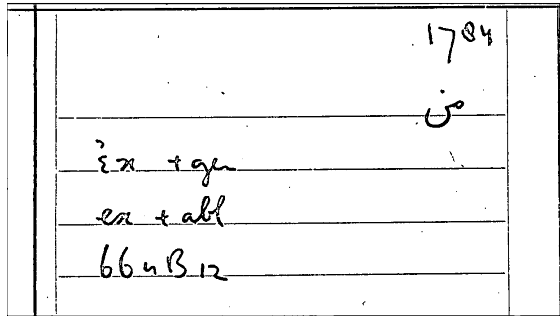 1784
من
ἐκ + gen
ex + abl
66 u B 12